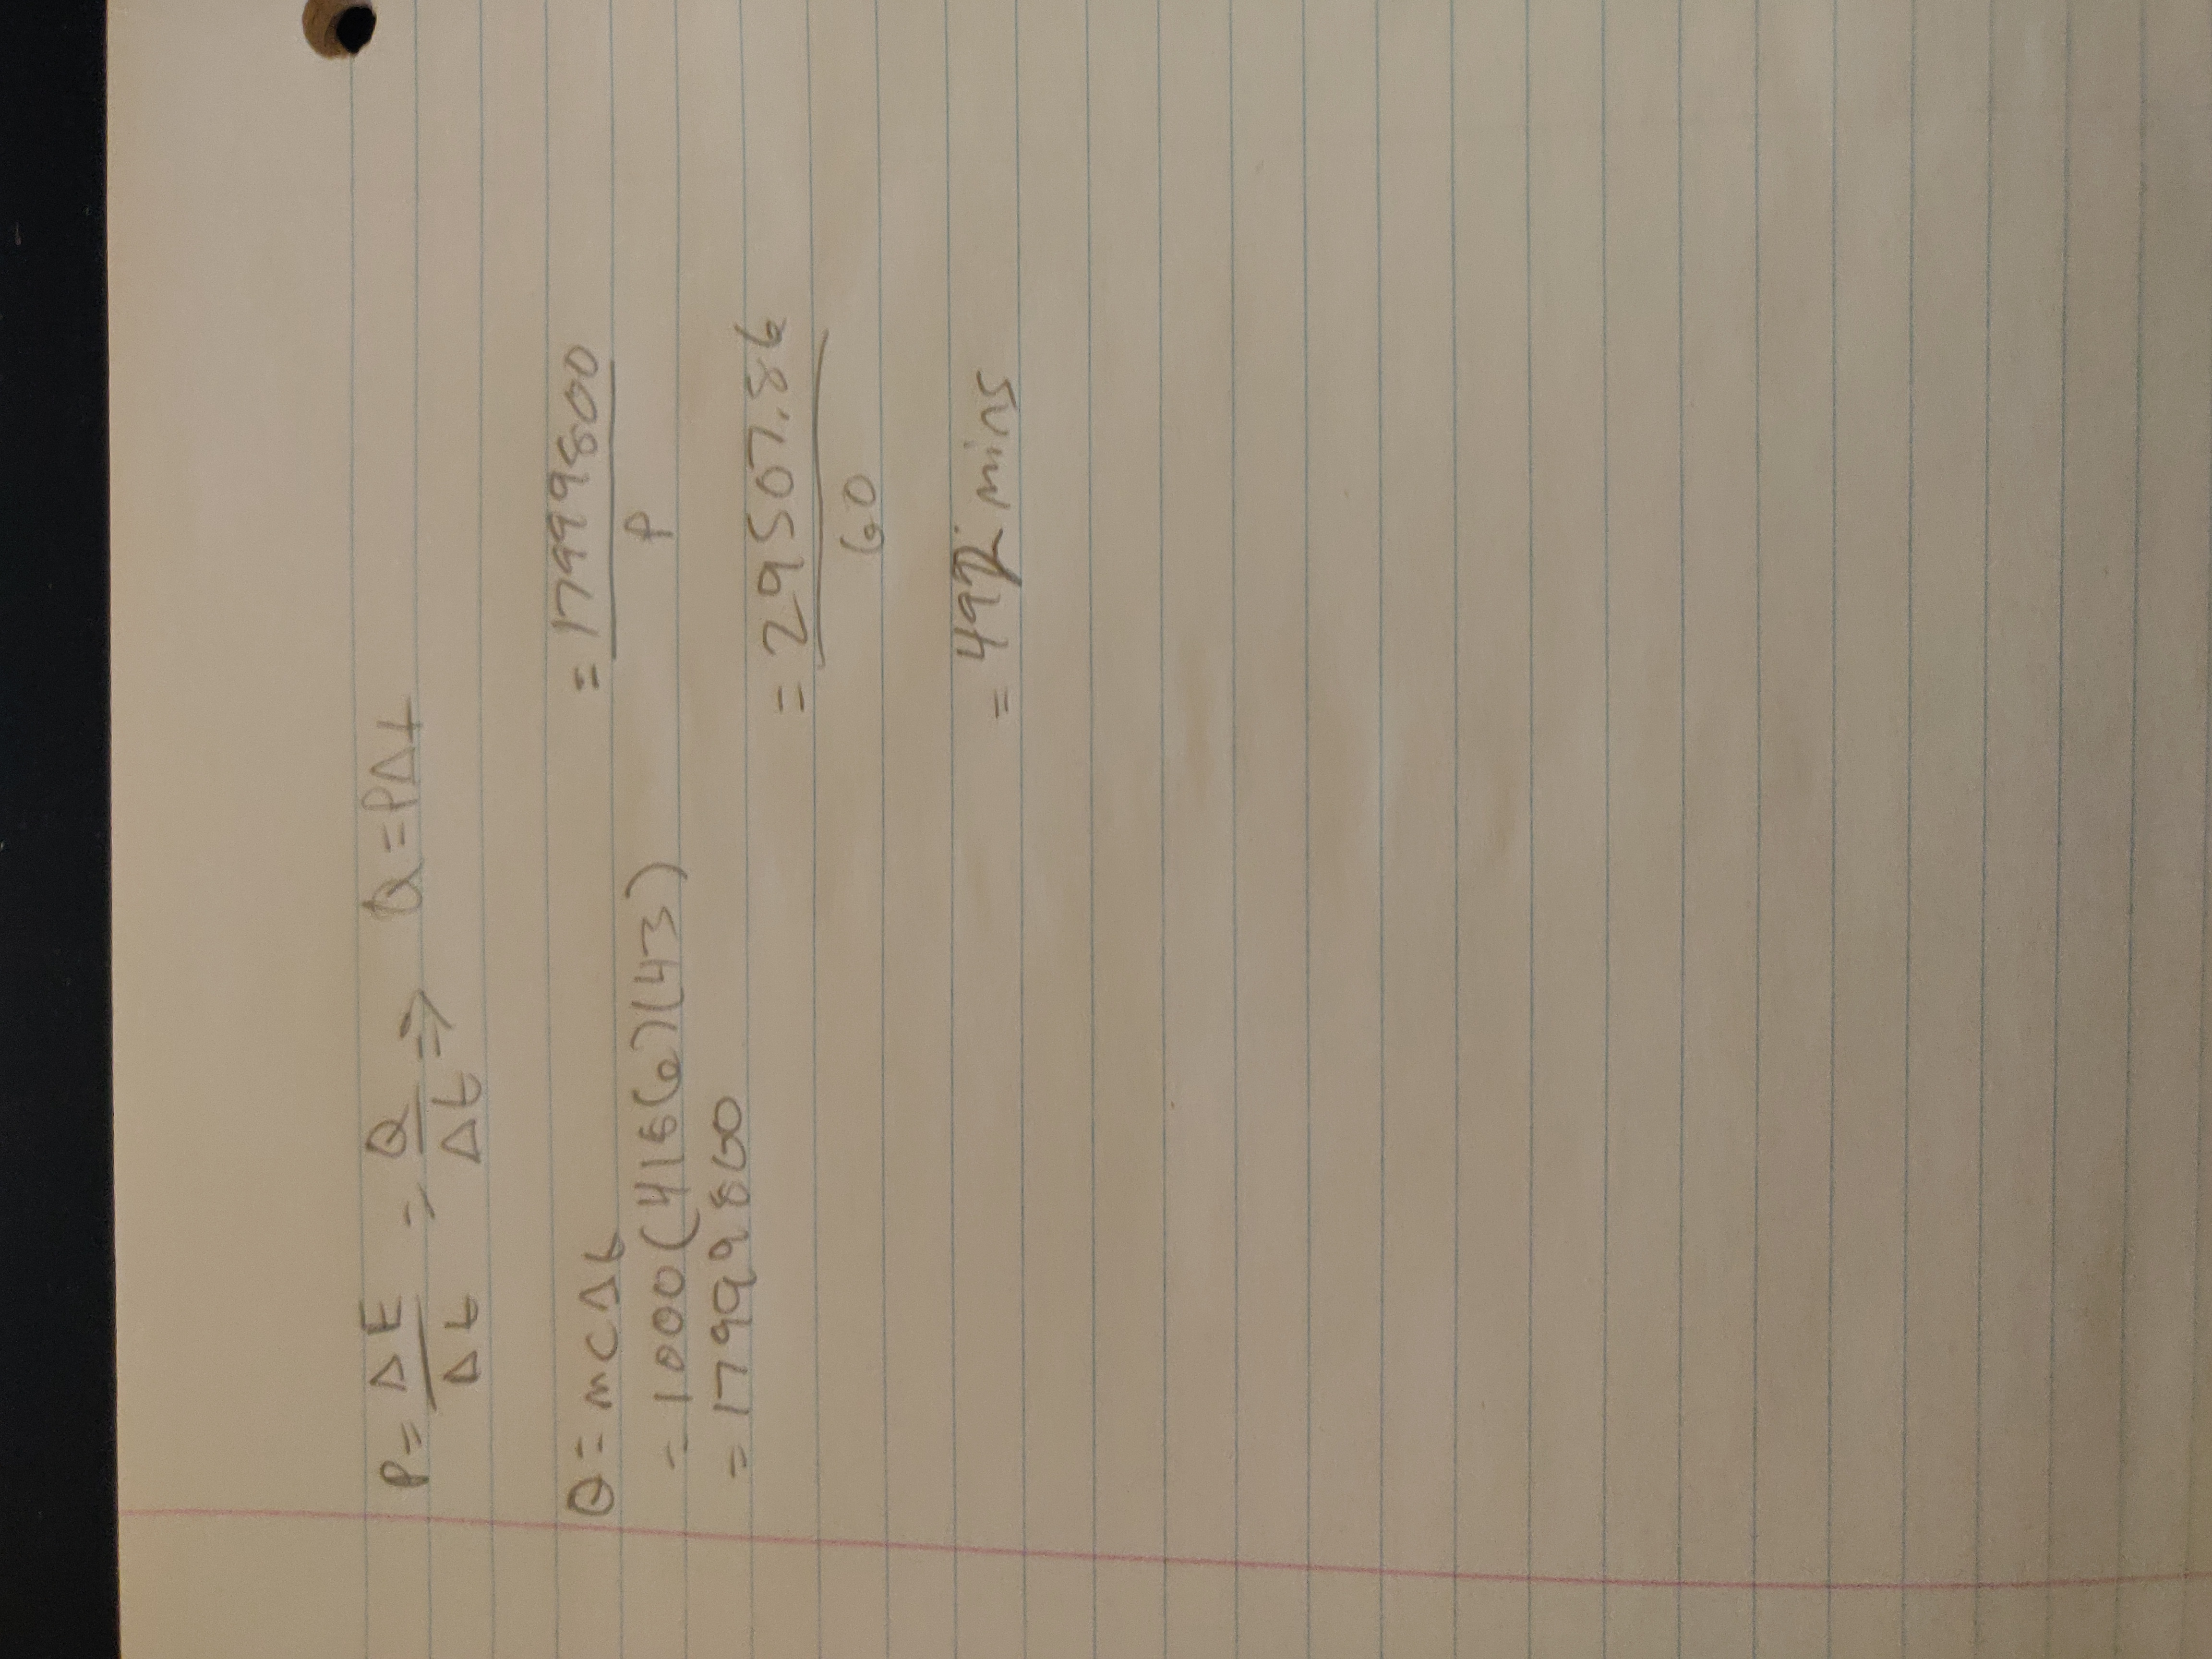 P = ΔE/Δt = Q/Δt ⇒ Q = PΔt
Q = mcΔt
= 1000(4186)(43)
= 17999800
= 17999800/P
= 29507.86/60
= 492 mins